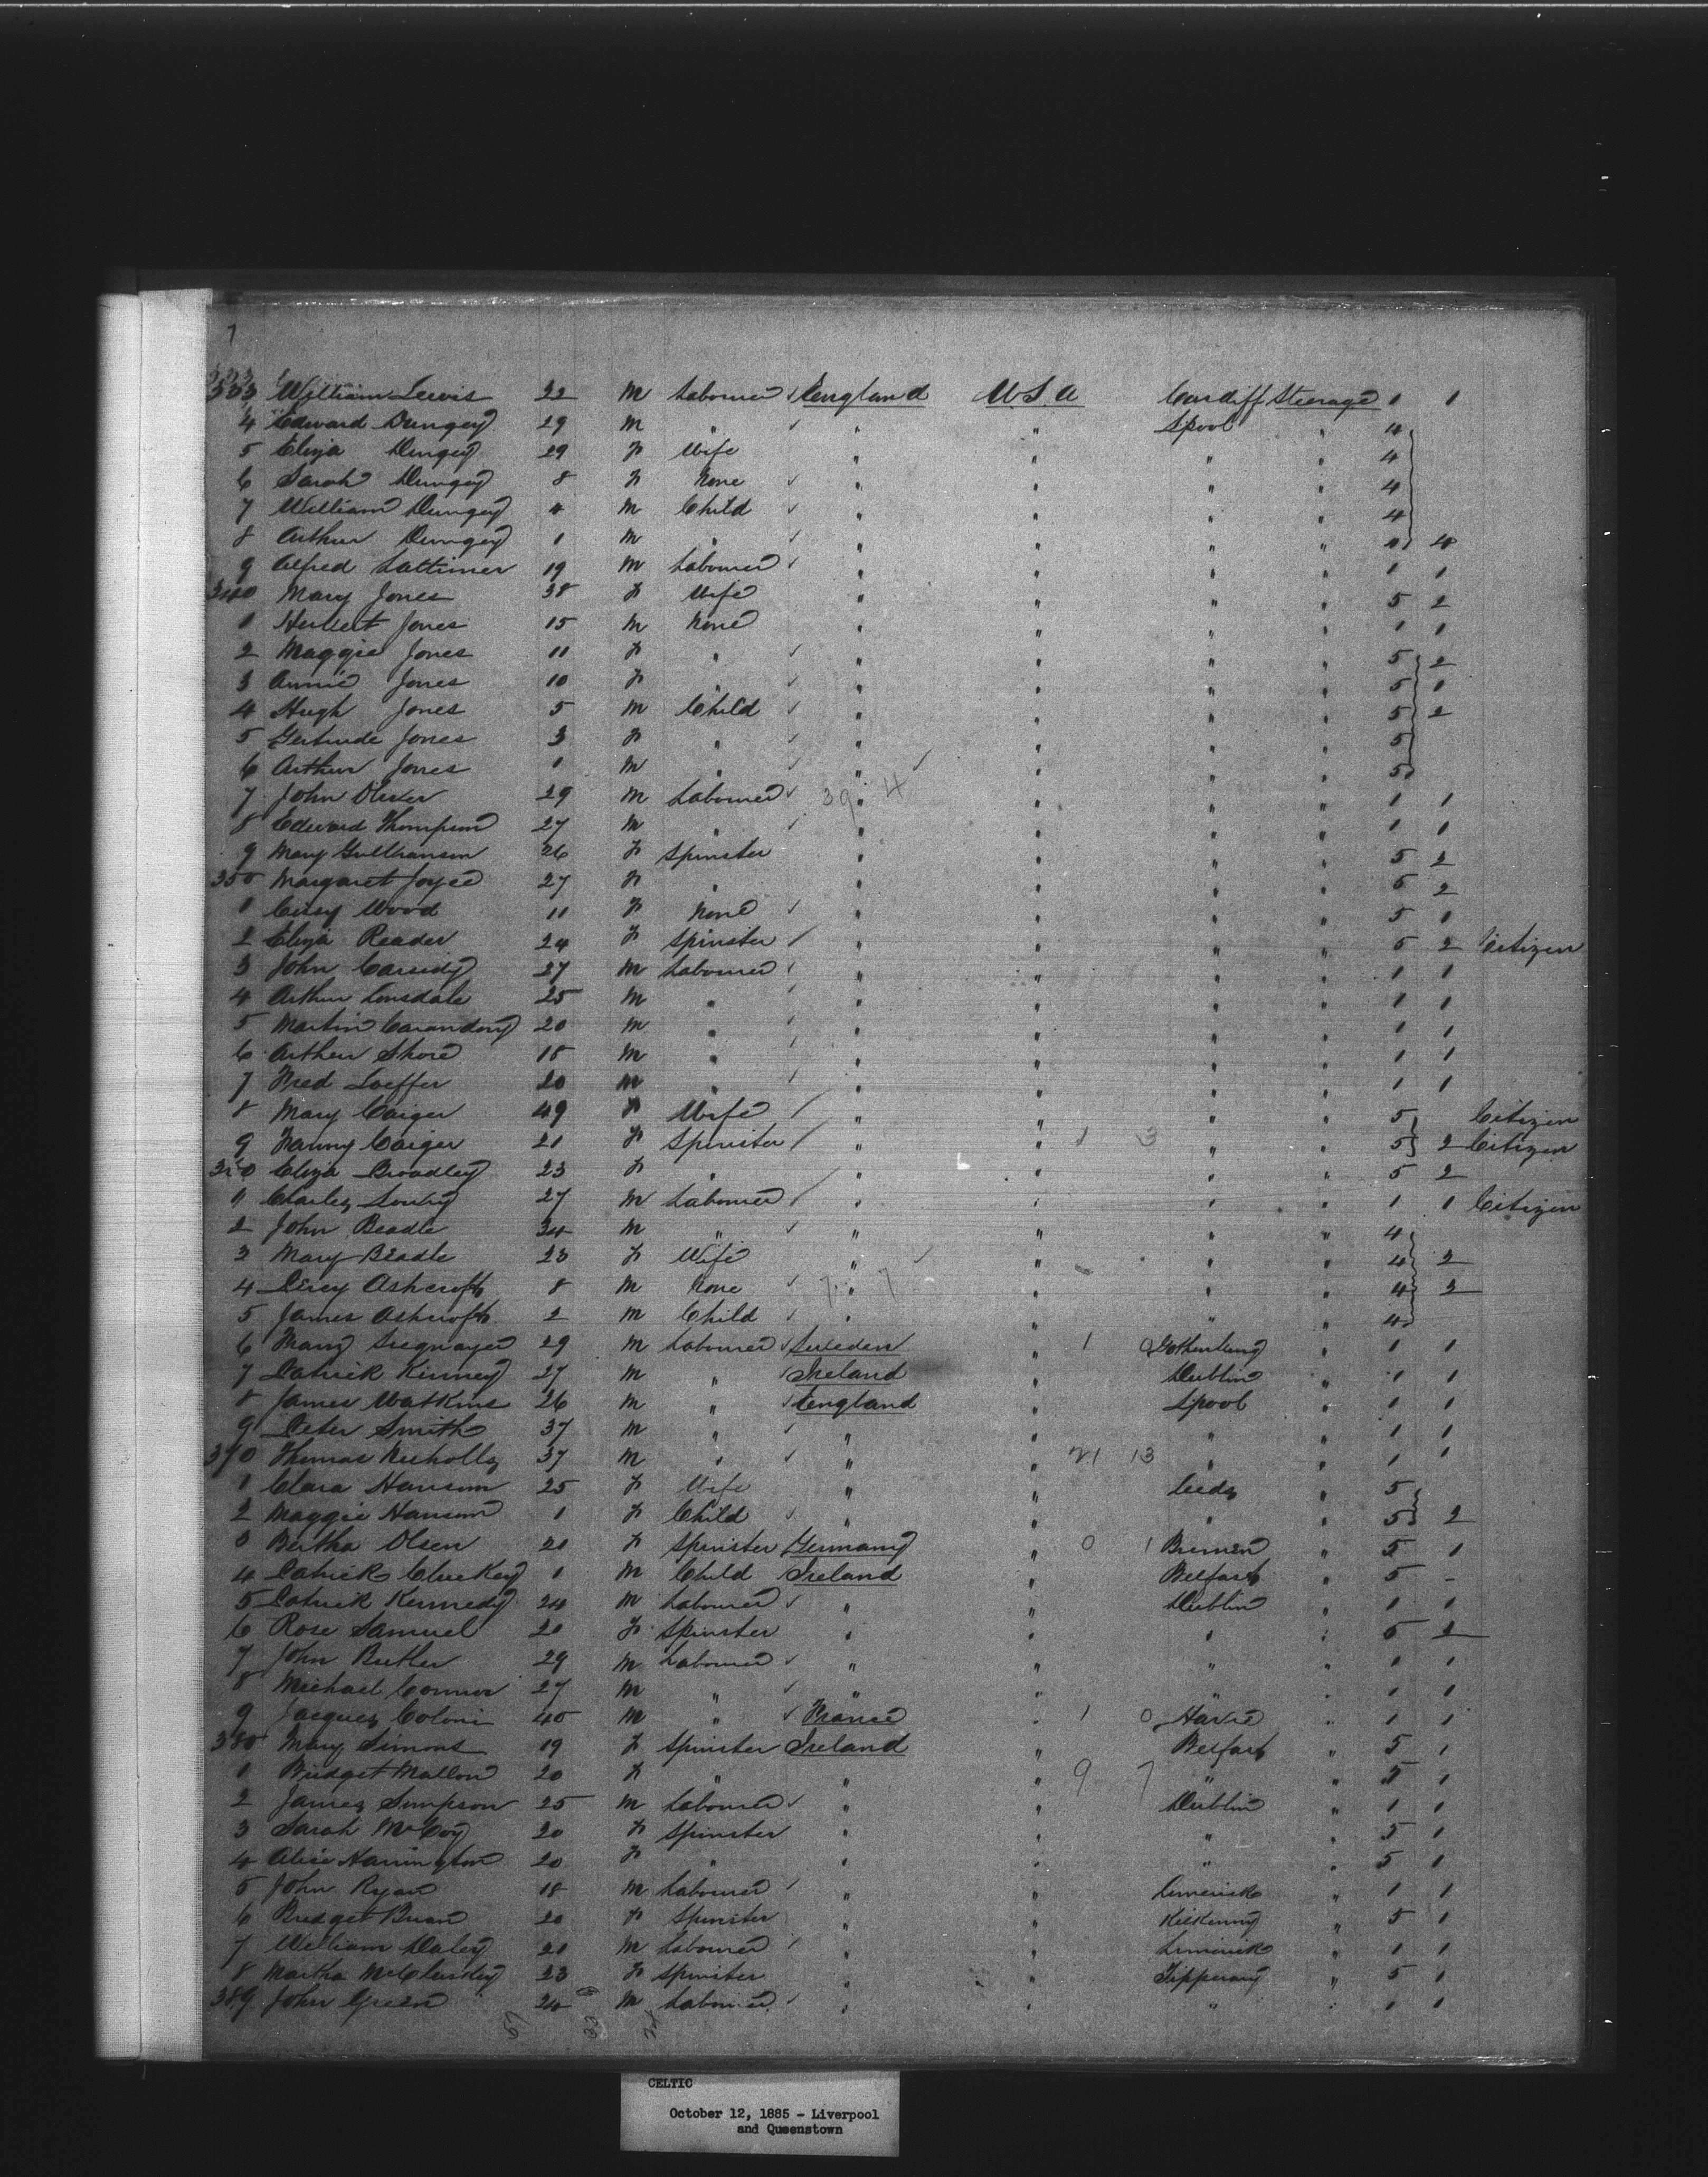 7
333 William Lewis 22 M Labourer England U.S.A Cardiff Steerage 1 1
4 Edward Dungey 29 M " " " Lpool " 4
5 Eliza Dungey 29 F Wife " " " " 4
6 Sarah Dungey 8 F None " " " " 4
7 William Dungey 4 M Child " " " " 4
8 Arthur Dungey 1 M " " " " " 4
9 Alfred Lattimer 19 M Labourer " " " " 1 1
340 Mary Jones 38 F Wife " " " " 5 2
1 Herbert Jones 15 M None " " " " 1 1
2 Maggie Jones 11 F " " " " " 5 2
3 Annie Jones 10 F " " " " " 5 1
4 Hugh Jones 5 M Child " " " " 5 2
5 Gertrude Jones 3 F " " " " " 5
6 Arthur Jones 1 M " " " " " 5
7 John Oliver 29 M Labourer 39 " 4 " " " 1 1
8 Edward Thompson 27 M " " " " " 1 1
9 Mary 26 F Spinster " " " " 5 2
350 Margaret Joyce 27 F " " " " " 5 2
1 Wood 11 F None " " " " 5 1
2 Eliza Reader 24 F Spinster " " " " 5 2 Citizen
3 John 27 M Labourer " " " " 1 1
4 Arthur Lonsdale 25 M " " " " " 1 1
5 Martin 20 M " " " " " 1 1
6 Arthur Shore 18 M " " " " " 1 1
7 Fred Loeffer 20 M " " " " " 1 1
8 Mary Caiger 49 F Wife " " " " 5 Citizen
9 Fanny Caiger 21 F Spinster " " 1 3 " " 5 2 Citizen
360 Eliza Broadley 23 F " " " " " 5 2
1 Charles 27 M Labourer " " " " 1 1 Citizen
2 John Beadle 34 M " " " " " 4
3 Mary Beadle 23 F Wife " " " " 4 2
4 Percy Ashcroft 8 M None 7 " 7 " " " 4 2
5 James Ashcroft 2 M Child " " " " 4
6 29 M Labourer Sweden " 1 0 Gothenburg " 1 1
7 Patrick Kinney 27 M " Ireland " Dublin " 1 1
8 James Watkins 26 M " England " Lpool " 1 1
9 Peter Smith 37 M " " " " " 1 1
370 Thomas Nicholls 37 M " " " 21 13 " " 1 1
1 Clara Hansom 25 F Wife " " Leeds " 5
2 Maggie Hansom 1 F Child " " " " 5 2
3 Bertha Olsen 21 F Spinster Germany " 0 1 Bremen " 5 1
4 Patrick Cluckey 1 M Child Ireland " Belfast " 5 -
5 Patrick Kennedy 24 M Labourer " " Dublin " 1 1
6 Rose Samuel 20 F Spinster " " " " 5 2
7 John Butler 29 M Labourer " " " " 1 1
8 Michael Connor 27 M " " " " " 1 1
9 Jacques Coloni 45 M " France " 1 0 Havre " 1 1
380 Mary Simons 19 F Spinster Ireland " Belfast " 5 1
1 Bridget Mallon 20 F " " " 9 7 " " 5 1
2 James Simpson 25 M Labourer " " Dublin " 1 1
3 Sarah McCoy 20 F Spinster " " " " 5 1
4 Alice Harrington 20 F " " " " " 5 1
5 John Ryan 18 M Labourer " " Limerick " 1 1
6 Bridget 20 F Spinster " " Kilkenny " 5 1
7 William Daley 21 M Labourer " " Limerick " 1 1
8 Martha McCluskey 23 F Spinster " " Tipperary " 5 1
389 John Green 24 M Labourer " " " " 1 1
57 33 24
CELTIC
October 12, 1885 - Liverpool
and Queenstown